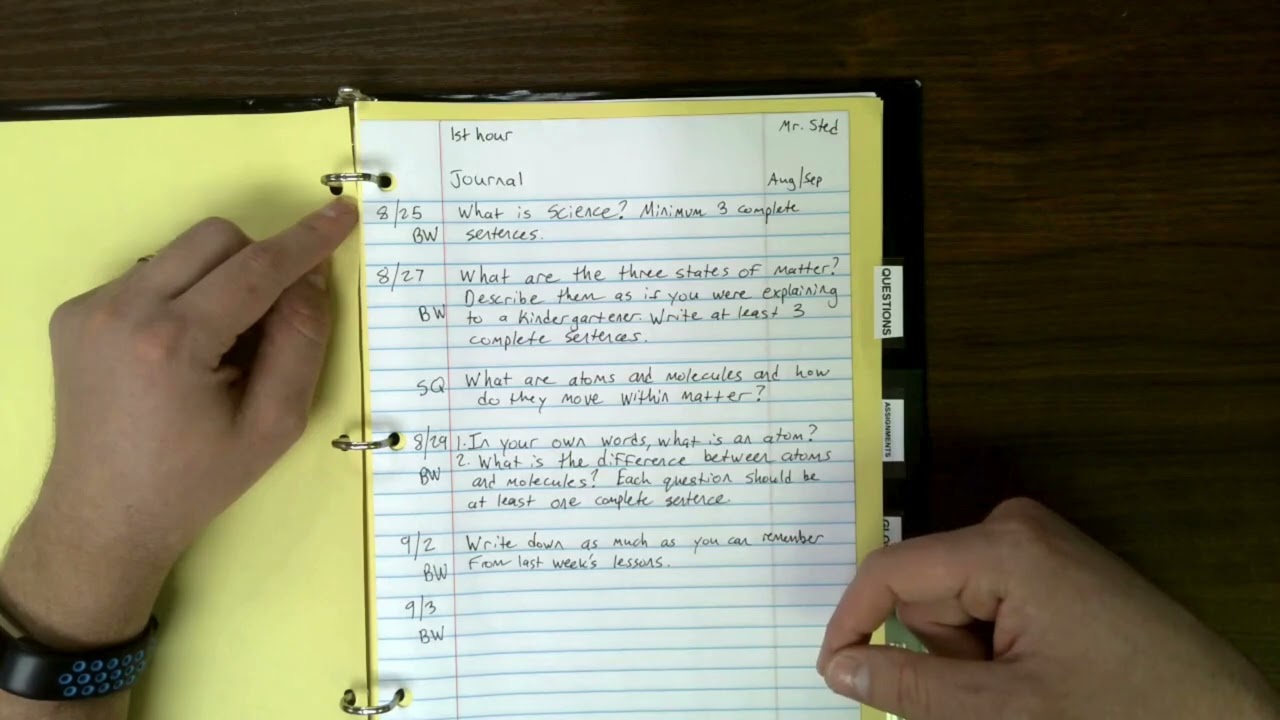 1st hour Mr. Sted
Journal Aug/Sep
8/25 What is Science? Minimum 3 complete
BW sentences.
8/27 What are the three states of matter?
Describe them as if you were explaining
BW to a Kindergartener. Write at least 3
complete sentences.
SQ What are atoms and molecules and how
do they move within matter?
8/29 1. In your own words, what is an atom?
2. What is the difference between atoms
BW and molecules? Each question should be
at least one complete sentence.
9/2 Write down as much as you can remember
BW From last week's lessons.
9/3
BW
QUESTIONS
ASSIGNMENTS